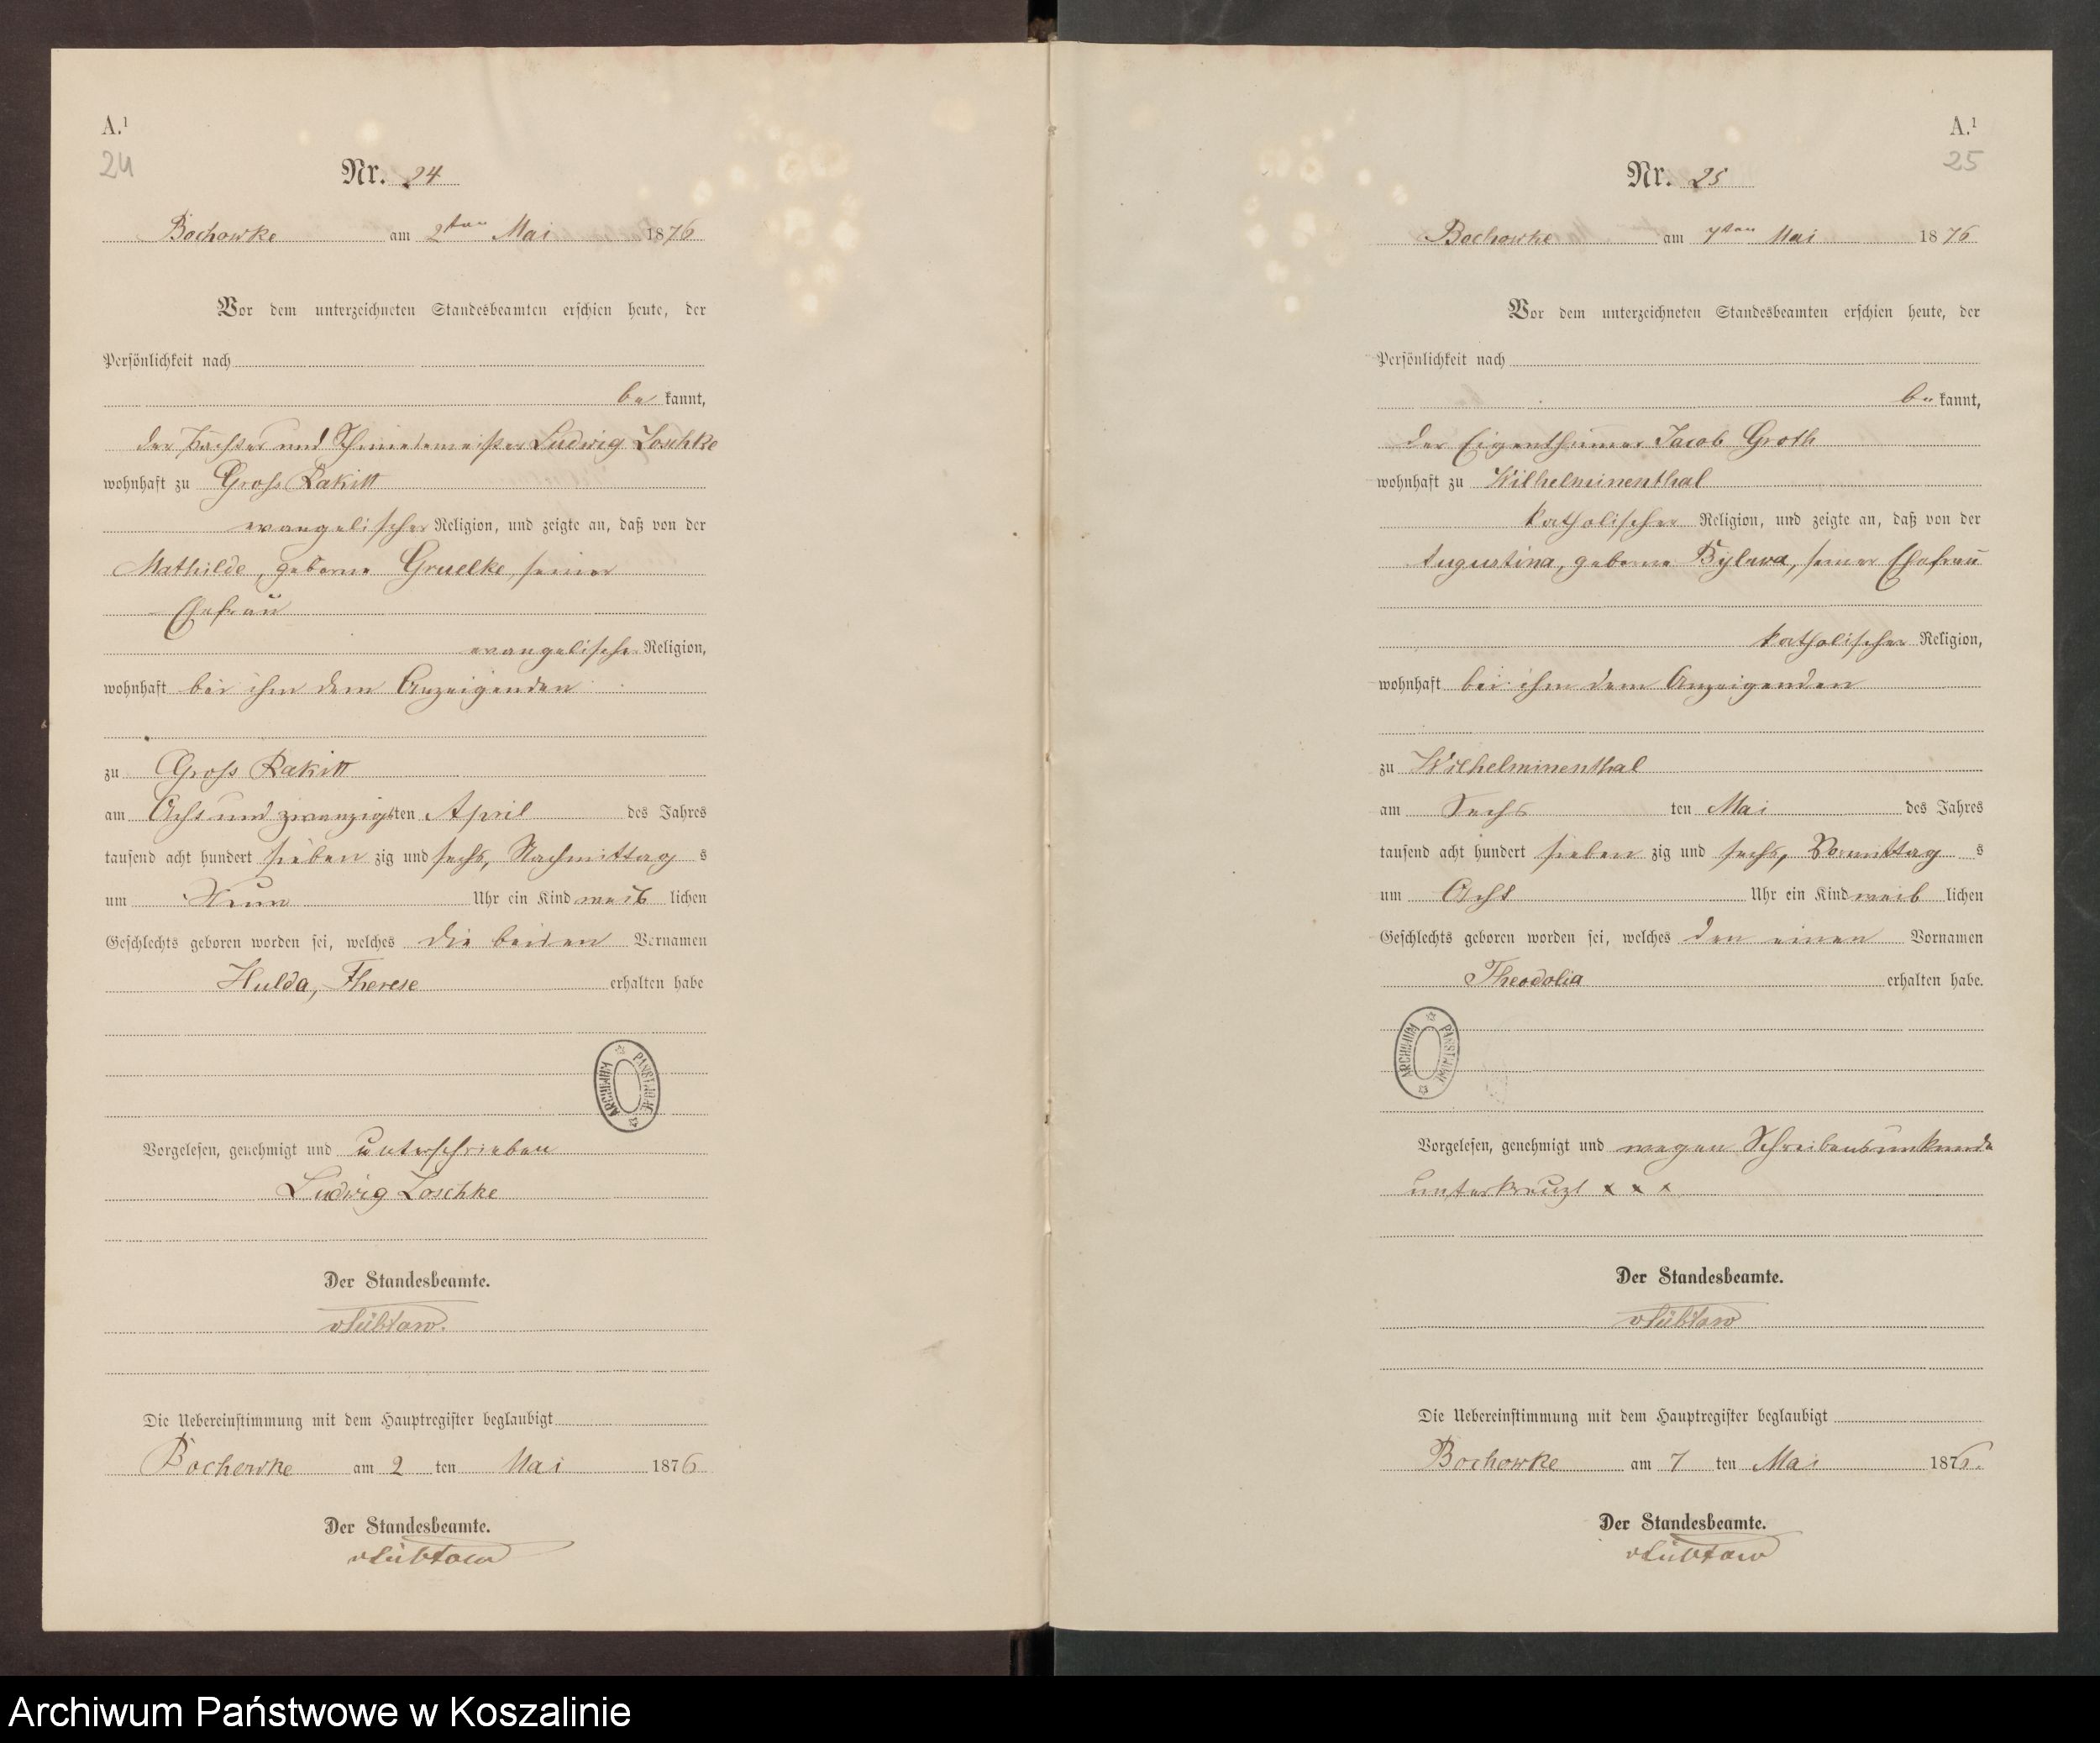 A.¹
24
Nr. 24
Bochowke am 2ten Mai 1876
Vor dem unterzeichneten Standesbeamten erschien heute, der
Persönlichkeit nach
be kannt,
der Pächter und Schmiedemeister Ludwig Loschke
wohnhaft zu Gross Rakitt
evangelischer Religion, und zeigte an, daß von der
Mathilde, geborne Gruelke, seiner
Ehefrau
evangelischer Religion,
wohnhaft bei ihm dem Anzeigenden
zu Gross Rakitt
am Acht und zwanzigsten April des Jahres
tausend acht hundert sieben zig und sechs, Nachmittag s
um Neun Uhr ein Kind weib lichen
Geschlechts geboren worden sei, welches die beiden Vornamen
Hulda, Therese erhalten habe
ARCHIWUM PAŃSTWOWE
Vorgelesen, genehmigt und unterschrieben
Ludwig Loschke
Der Standesbeamte.
vLübtow.
Die Uebereinstimmung mit dem Hauptregister beglaubigt
Bochowke am 2 ten Mai 1876
Der Standesbeamte.
vLübtow
A.¹
25
Nr. 25
Bochowke am 7ten Mai 1876
Vor dem unterzeichneten Standesbeamten erschien heute, der
Persönlichkeit nach
be kannt,
der Eigenthümer Jacob Groth
wohnhaft zu Wilhelminenthal
katholischer Religion, und zeigte an, daß von der
Augustina, geborne Bylawa, seiner Ehefrau
katholischer Religion,
wohnhaft bei ihm dem Anzeigenden
zu Wilhelminenthal
am Sechs ten Mai des Jahres
tausend acht hundert sieben zig und sechs, Vormittag s
um Acht Uhr ein Kind weib lichen
Geschlechts geboren worden sei, welches den einen Vornamen
Theodolia erhalten habe.
ARCHIWUM PAŃSTWOWE
Vorgelesen, genehmigt und wegen Schreibensunkunde
unterkreuzt x x x
Der Standesbeamte.
vLübtow
Die Uebereinstimmung mit dem Hauptregister beglaubigt
Bochowke am 7 ten Mai 1876.
Der Standesbeamte.
vLübtow
Archiwum Państwowe w Koszalinie